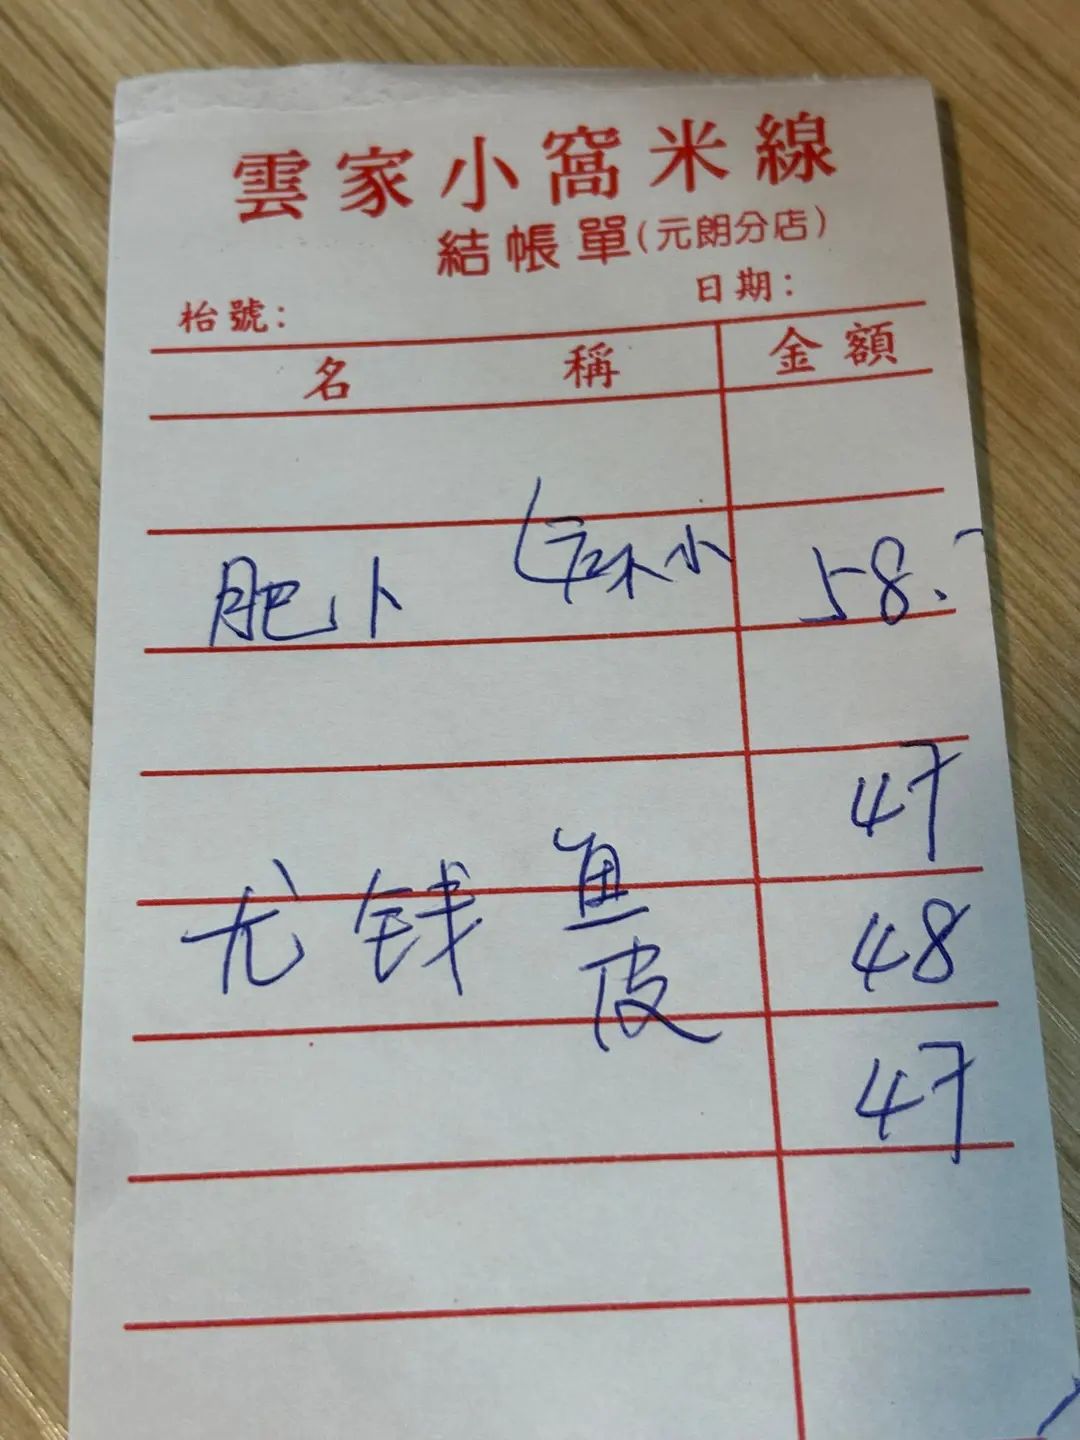 雲家小窩米線
結帳單(元朗分店)
枱號: 日期:
名稱 金額
肥卜 小 58.
47
尤 钱 鱼皮 48
47